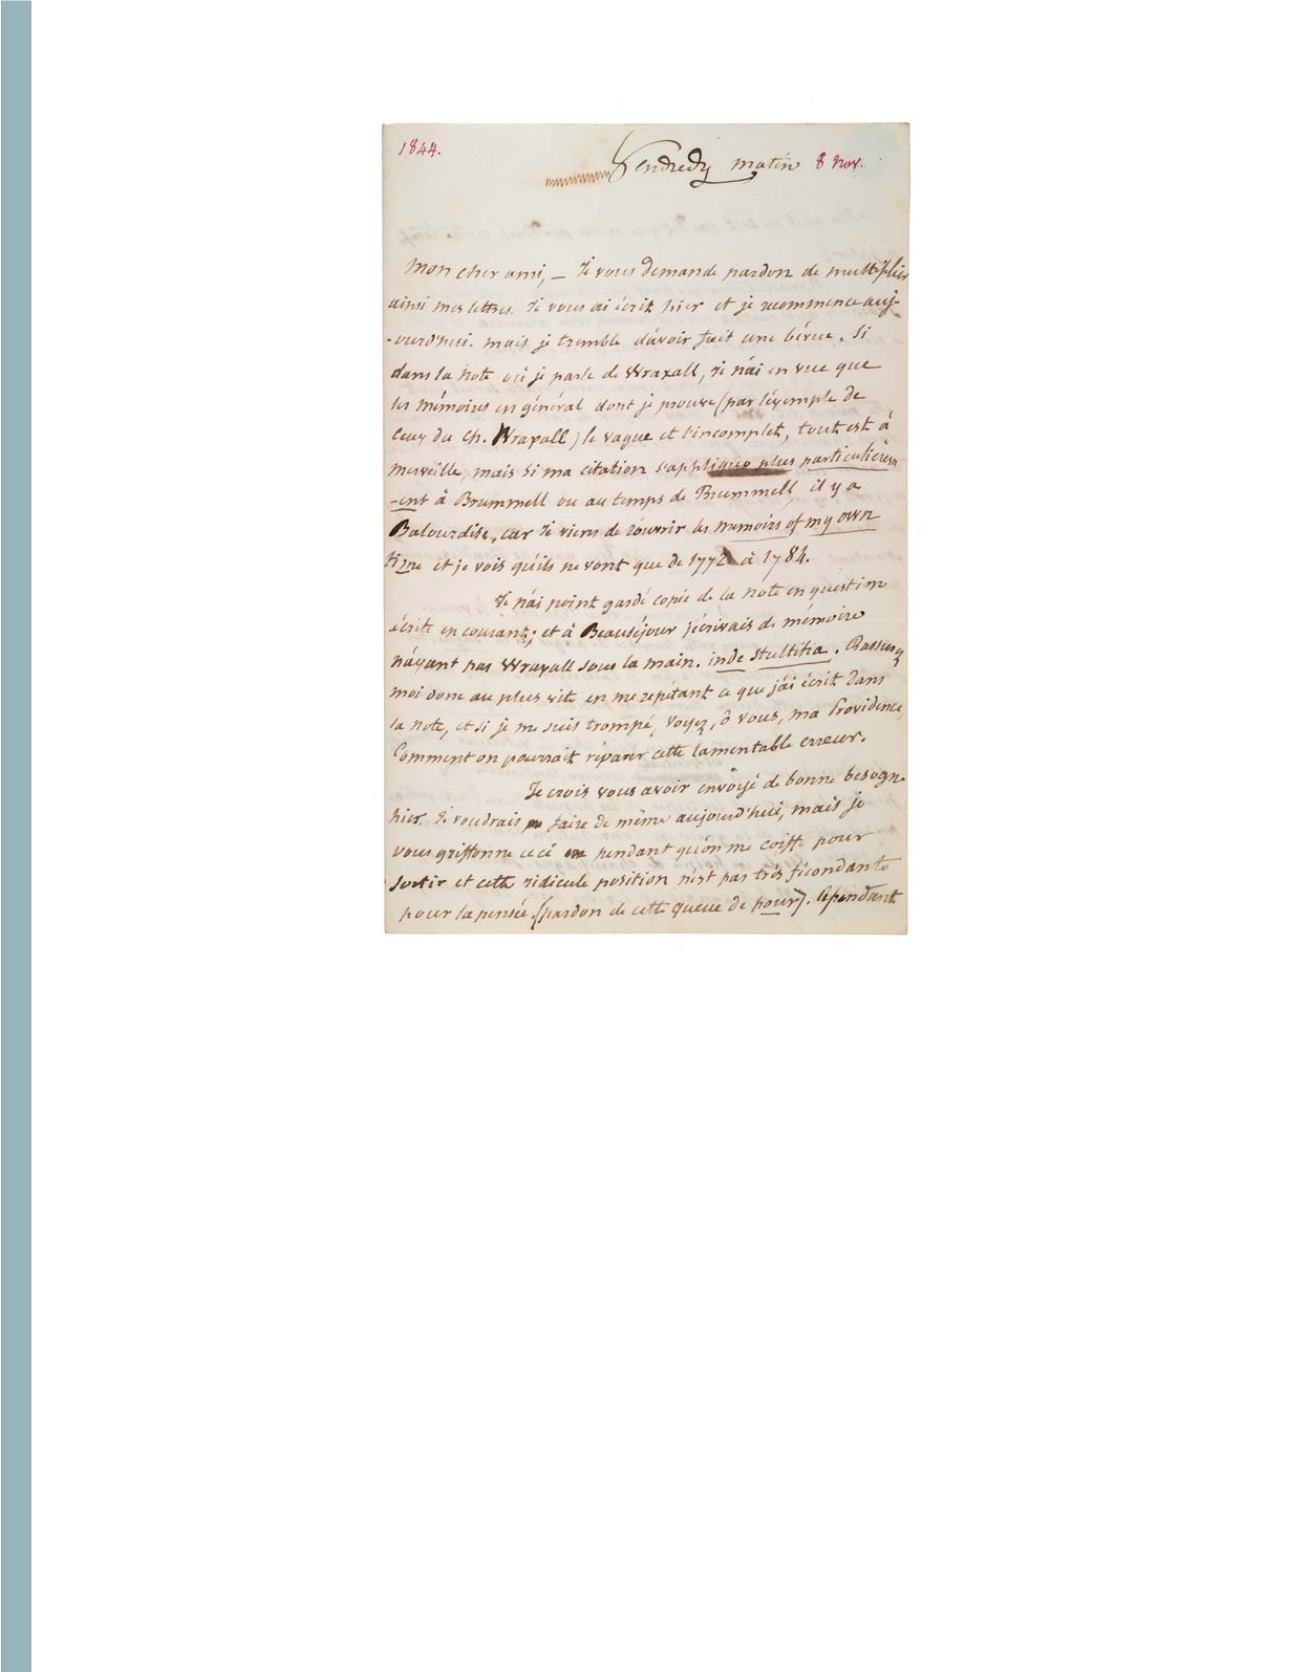 1844.
Vendredy matin 8 nov.
Mon cher ami, — Je vous demande pardon de multiplier
ainsi mes lettres. Je vous ai écrit hier et je recommence auj-
-ourd'hui. mais je tremble d'avoir fait une bévue. Si
dans la note où je parle de Wraxall, je n'ai en vue que
les mémoires en général dont je prouve (par l'éxemple de
ceux du Ch. Wraxall) le vague et l'incomplet, tout est à
merveille, mais si ma citation s'applique plus particulièrem
-ent à Brummell ou au temps de Brummell, il y a
Balourdise, car je viens de r'ouvrir les memoirs of my own
time et je vois qu'ils ne vont que de 1772 à 1784.
Je n'ai point gardé copie de la note en question
écrite en courant; et à Beauséjour j'écrivais de mémoire
n'ayant pas Wraxall sous la main. inde stultitia. Rassurez
moi donc au plus vite en me repétant ce que j'ai écrit dans
la note, et si je me suis trompé, voyez, ô vous, ma Providence,
Comment on pourrait réparer cette lamentable erreur.
Je crois vous avoir envoyé de bonne besogne
hier. Je voudrais faire de même aujourd'hui, mais je
vous griffonne ceci pendant qu'on me coiffe pour
sortir et cette ridicule position n'est pas très fécondante
pour la pensée. (pardon de cette queue de pour). Cependant